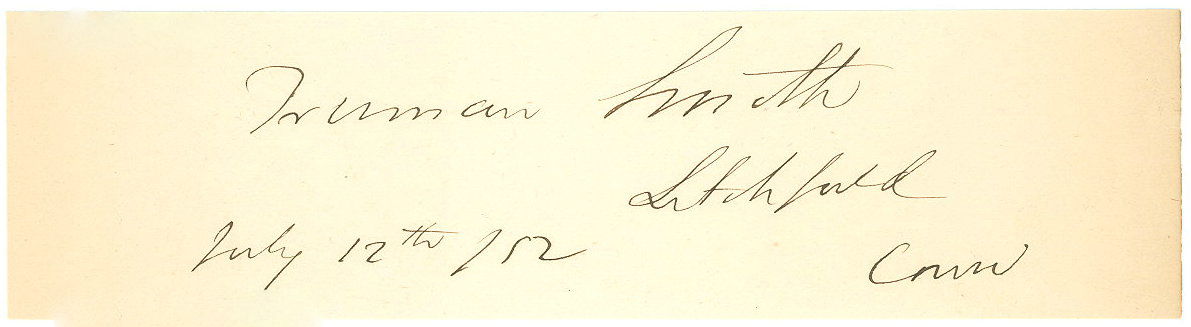 Truman Smith
Litchfield
July 12th /52
Conn